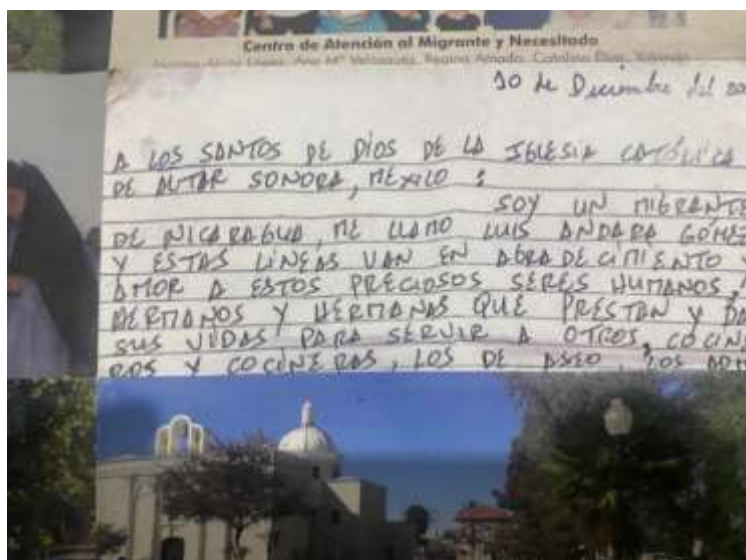 Centro de Atención al Migrante y Necesitado
Ana Mª Velásquez, Regina Amado, Catalina
10 de Diciembre del
A LOS SANTOS DE DIOS DE LA IGLESIA CATÓLICA
DE ALTAR SONORA, MEXICO :
SOY UN MIGRANTE
DE NICARAGUA, ME LLAMO LUIS ANDARA GÓMEZ
Y ESTAS LÍNEAS VAN EN AGRADECIMIENTO Y
AMOR A ESTOS PRECIOSOS SERES HUMANOS,
HERMANOS Y HERMANAS QUE PRESTAN Y DA
SUS VIDAS PARA SERVIR A OTROS, COCINE
ROS Y COCINERAS, LOS DE ASEO, LOS